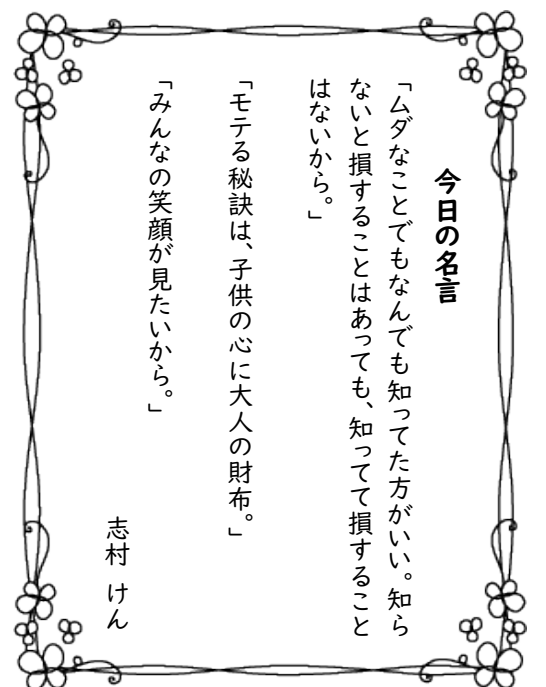 今日の名言
「ムダなことでもなんでも知ってた方がいい。知ら
ないと損することはあっても、知ってて損すること
はないから。」
「モテる秘訣は、子供の心に大人の財布。」
「みんなの笑顔が見たいから。」
志村 けん